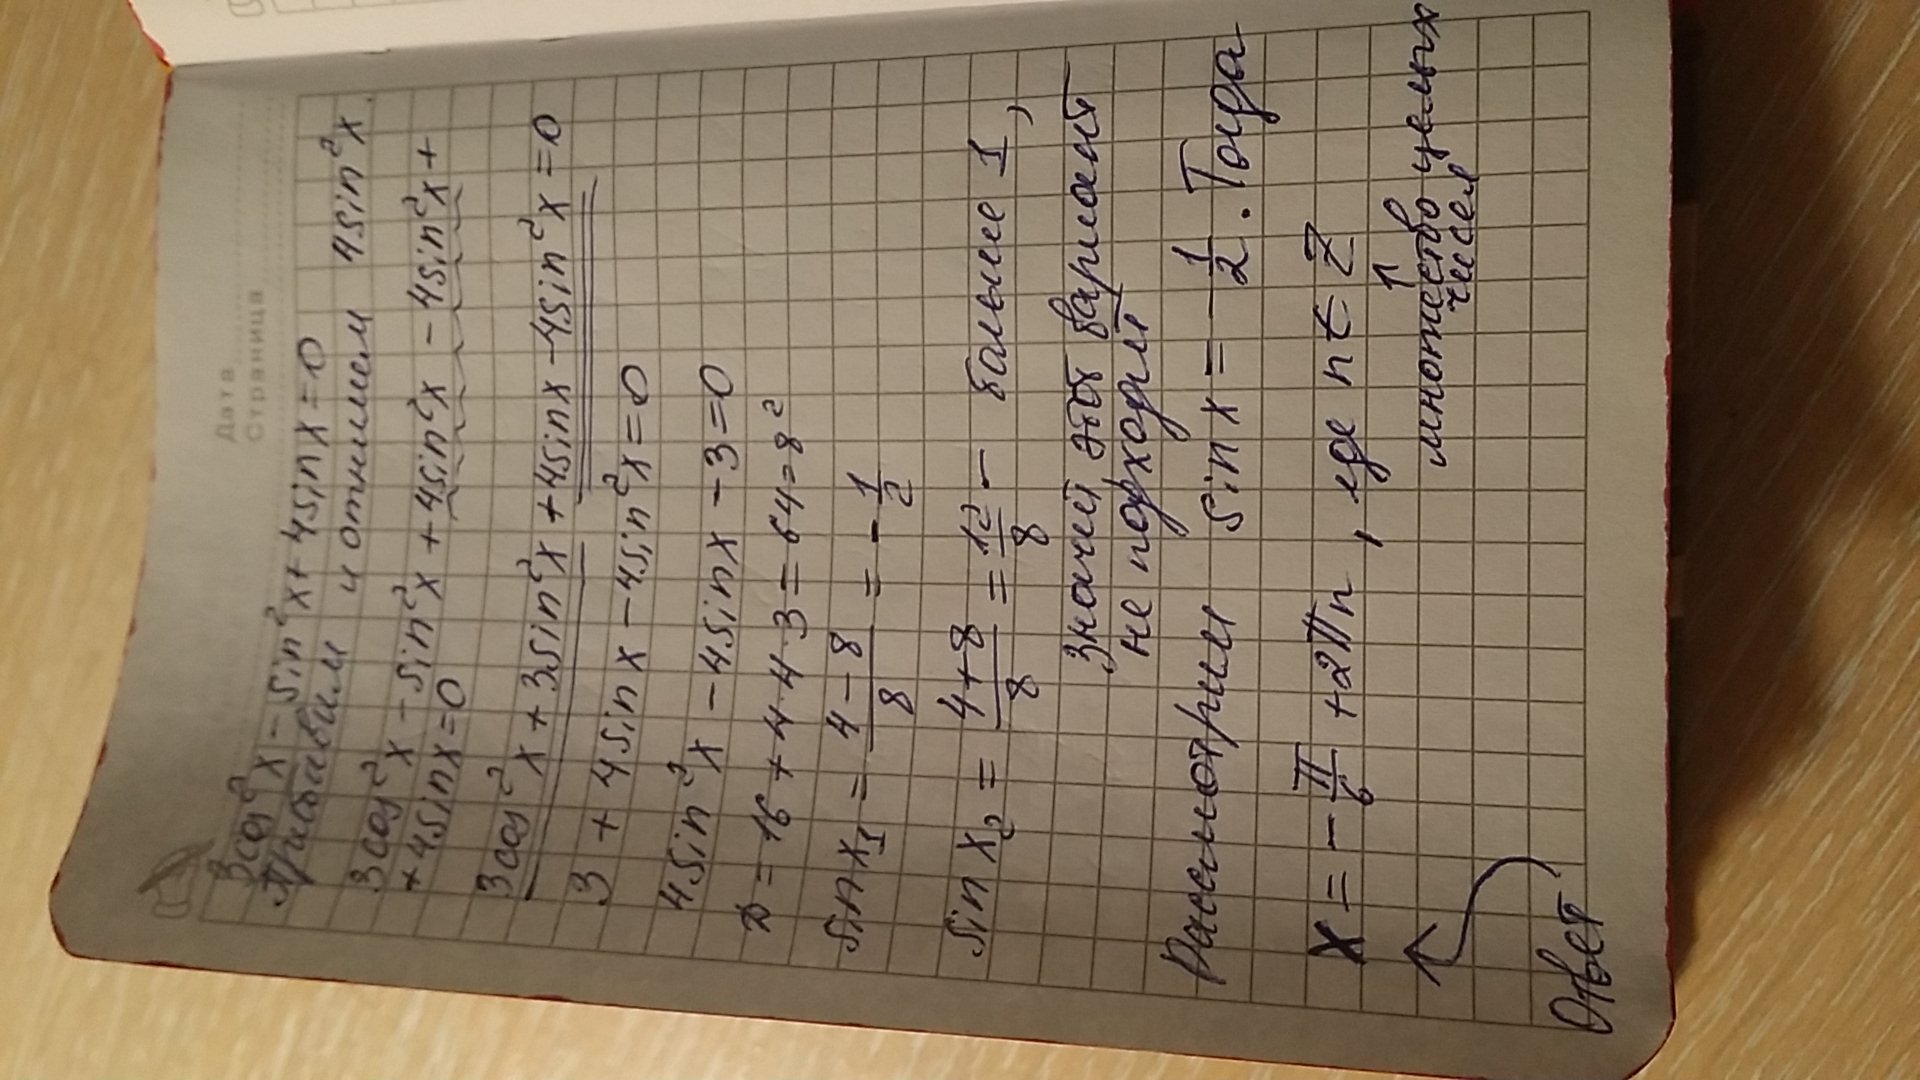 Дата
Страница
3cos²x - sin²x + 4sinx = 0
Прибавим и отнимем 4sin²x.
3cos²x - sin²x + 4sin²x - 4sin²x +
+ 4sinx = 0
3cos²x + 3sin²x + 4sinx - 4sin²x = 0
3 + 4sinx - 4sin²x = 0
4sin²x - 4sinx - 3 = 0
D = 16 + 4·4·3 = 64 = 8²
sin x₁ = (4 - 8)/8 = - 1/2
sin x₂ = (4 + 8)/8 = 12/8 - больше 1,
значит этот вариант
не подходит
Рассмотрим sin x = - 1/2. Тогда
x = - π/6 + 2πn, где n ∈ Z
↑
множество целых
чисел
Ответ